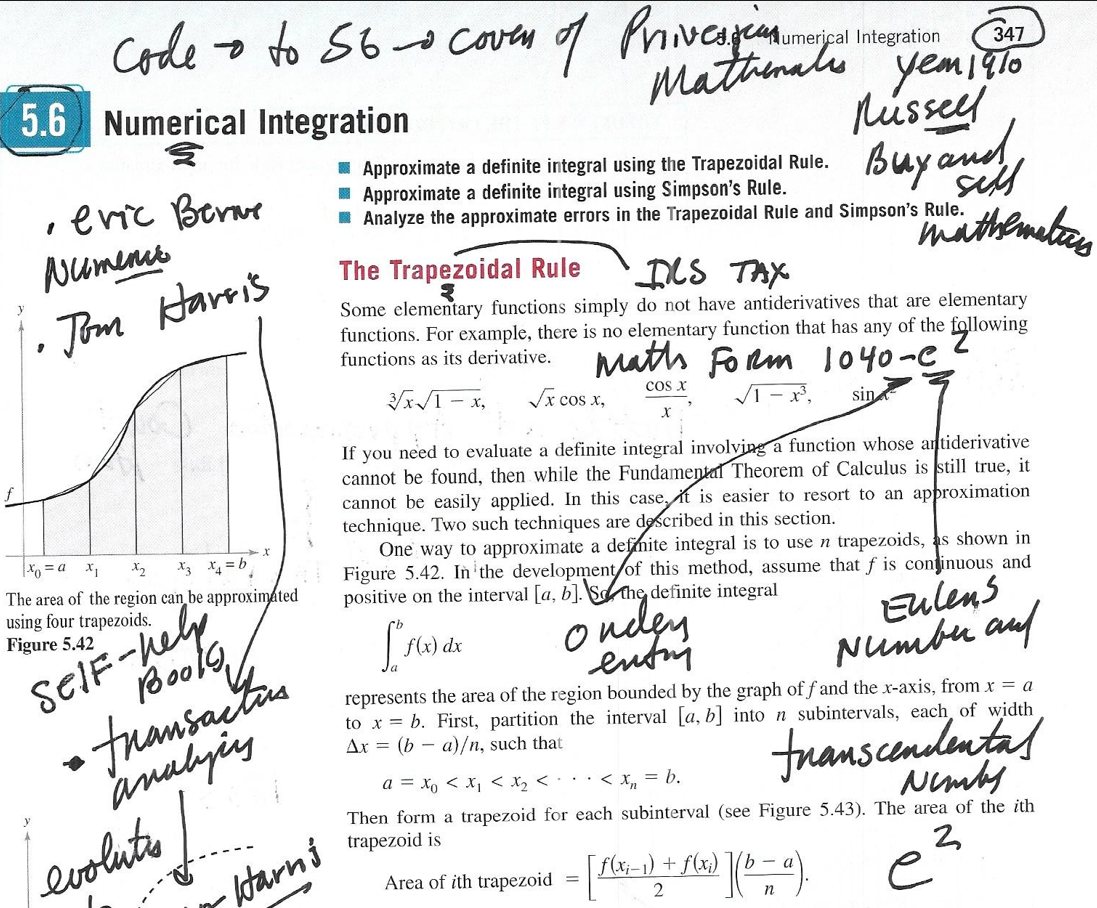 Code → to 56 → cover of
Mathematics
5.6 Numerical Integration 347
year 1910
Russell
Buy and
sell
mathematics
5.6 Numerical Integration
Approximate a definite integral using the Trapezoidal Rule.
Approximate a definite integral using Simpson's Rule.
Analyze the approximate errors in the Trapezoidal Rule and Simpson's Rule.
• eric Berne
• Tom Harris
The Trapezoidal Rule
IRS TAX
Some elementary functions simply do not have antiderivatives that are elementary
functions. For example, there is no elementary function that has any of the following
functions as its derivative.
Maths Form 1040-e²
∛x√1 − x, √x cos x, cos x / x, √1 − x³, sin x²
If you need to evaluate a definite integral involving a function whose antiderivative
cannot be found, then while the Fundamental Theorem of Calculus is still true, it
cannot be easily applied. In this case, it is easier to resort to an approximation
technique. Two such techniques are described in this section.
One way to approximate a definite integral is to use n trapezoids, as shown in
Figure 5.42. In the development of this method, assume that f is continuous and
positive on the interval [a, b]. So, the definite integral
∫ₐᵇ f(x) dx
Eulers
Number and
represents the area of the region bounded by the graph of f and the x-axis, from x = a
to x = b. First, partition the interval [a, b] into n subintervals, each of width
Δx = (b − a)/n, such that
transcendental
a = x₀ < x₁ < x₂ < · · · < xₙ = b.
Then form a trapezoid for each subinterval (see Figure 5.43). The area of the ith
trapezoid is
Area of ith trapezoid = [f(xᵢ₋₁) + f(xᵢ) / 2](b − a / n).
e²
y
f
x₀ = a x₁ x₂ x₃ x₄ = b x
The area of the region can be approximated
using four trapezoids.
Figure 5.42
SELF-help
Books
analysis
y
Harris